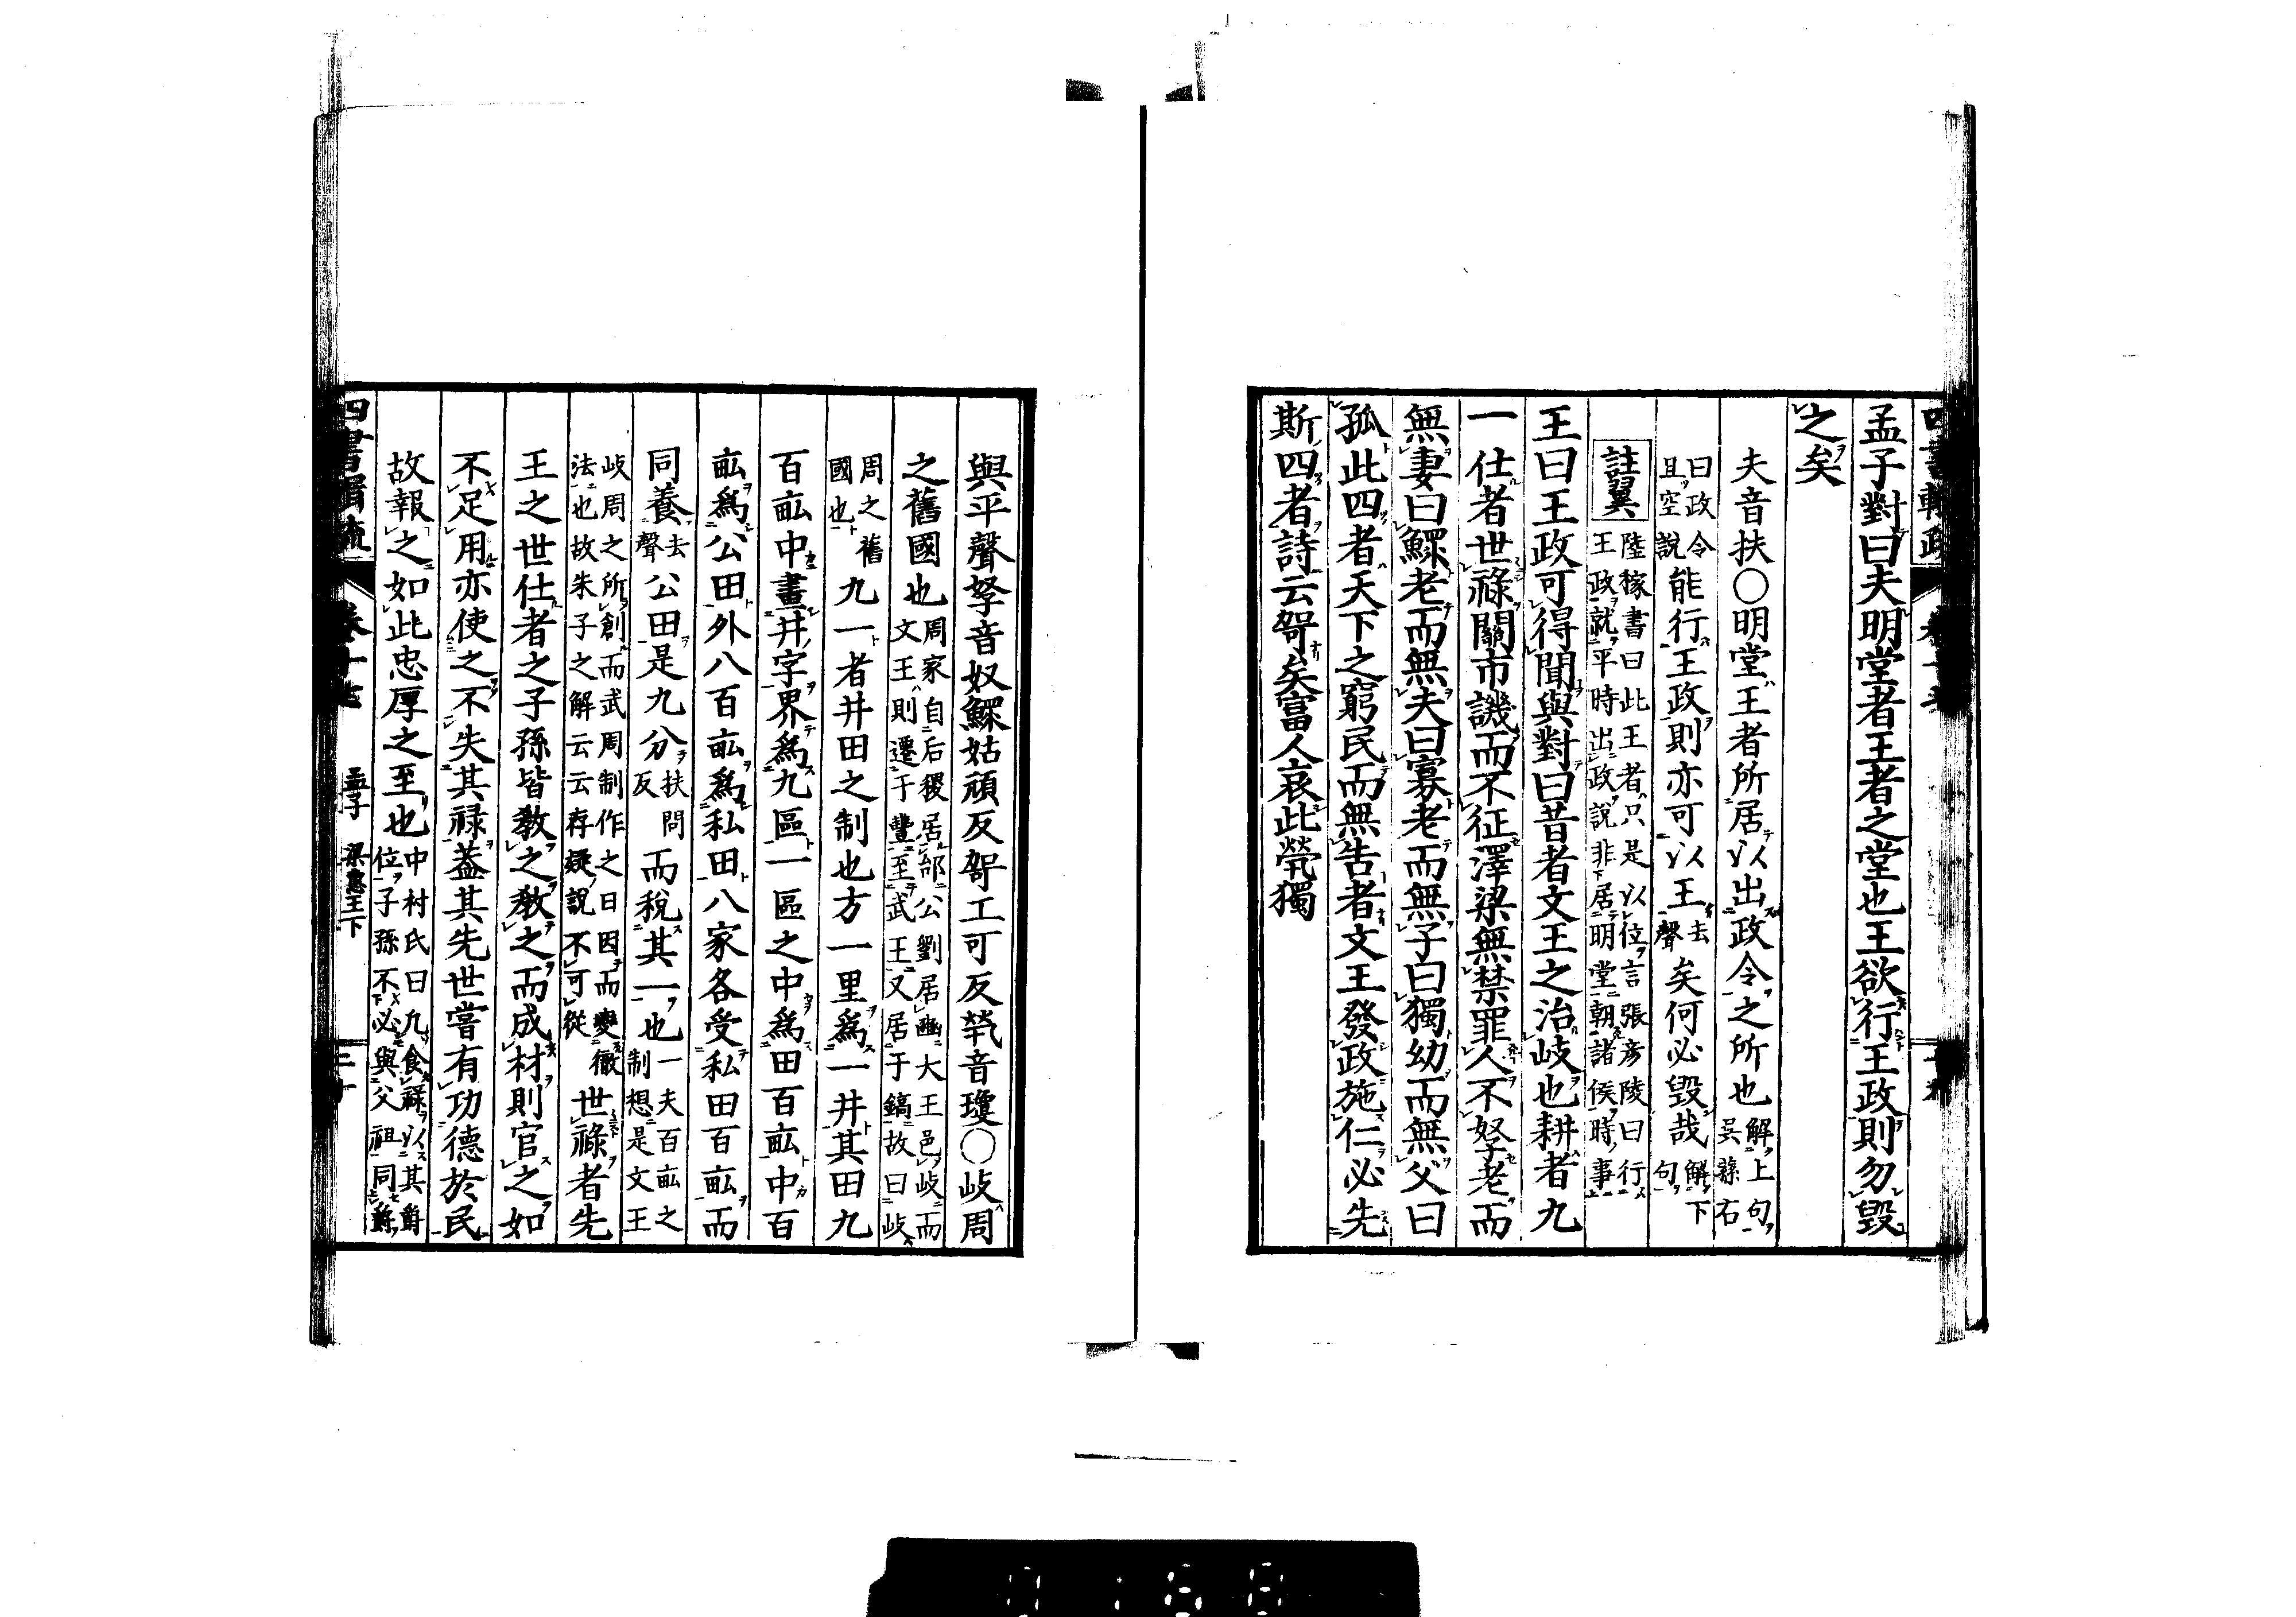 孟子對曰夫明堂者王者之堂也王欲行王政則勿毀
之矣
夫音扶○明堂王者所居以出政令之所也解上句吳蓀右
曰政令且空說能行王政則亦可以王去聲矣何必毀哉解下句
註翼陸稼書曰此王者只是以位言張彥陵曰行王政就平時出政說非居明堂朝諸侯時事
王曰王政可得聞與對曰昔者文王之治岐也耕者九
一仕者世祿關市譏而不征澤梁無禁罪人不孥老而
無妻曰鰥老而無夫曰寡老而無子曰獨幼而無父曰
孤此四者天下之窮民而無告者文王發政施仁必先
斯四者詩云哿矣富人哀此煢獨
與平聲孥音奴鰥姑頑反哿工可反煢音瓊○岐周
之舊國也周家自后稷居邰公劉居豳大王邑岐而文王則遷于豐至武王又居于鎬故曰岐
周之舊國也九一者井田之制也方一里爲一井其田九
百畝中畫井字界爲九區一區之中爲田百畝中百
畝爲公田外八百畝爲私田八家各受私田百畝而
同養去聲公田是九分扶問反而稅其一也一夫百畝之制想是文王
岐周之所創而武周制作之日因而變徹法也故朱子之解云云存疑說不可從世祿者先
王之世仕者之子孫皆敎之敎之而成材則官之如
不足用亦使之不失其祿蓋其先世嘗有功德於民
故報之如此忠厚之至也中村氏曰凡食祿以其爵位子孫不必與父祖同爵
孟子 梁惠王下